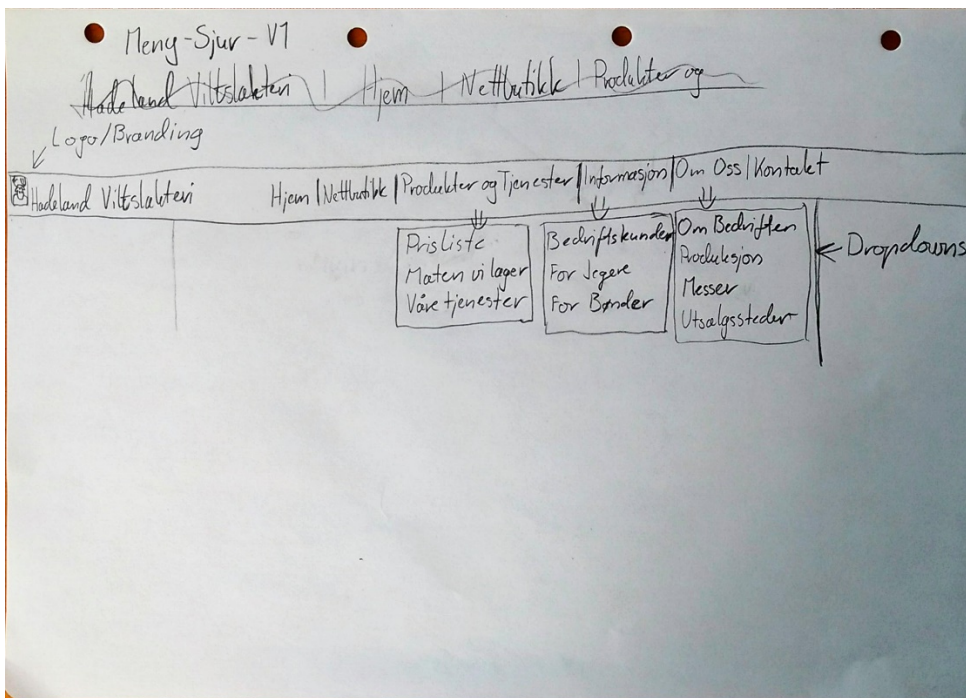 Meny-Sjur-V1
Hadeland Viltslakteri | Hjem | Nettbutikk | Produkter og
Logo/Branding
Hadeland Viltslakteri Hjem | Nettbutikk | Produkter og Tjenester | Informasjon | Om Oss | Kontakt
Prisliste
Maten vi lager
Våre tjenester
Bedriftskunder
For Jegere
For Bønder
Om Bedriften
Produksjon
Messer
Utsalgssteder
← Dropdowns